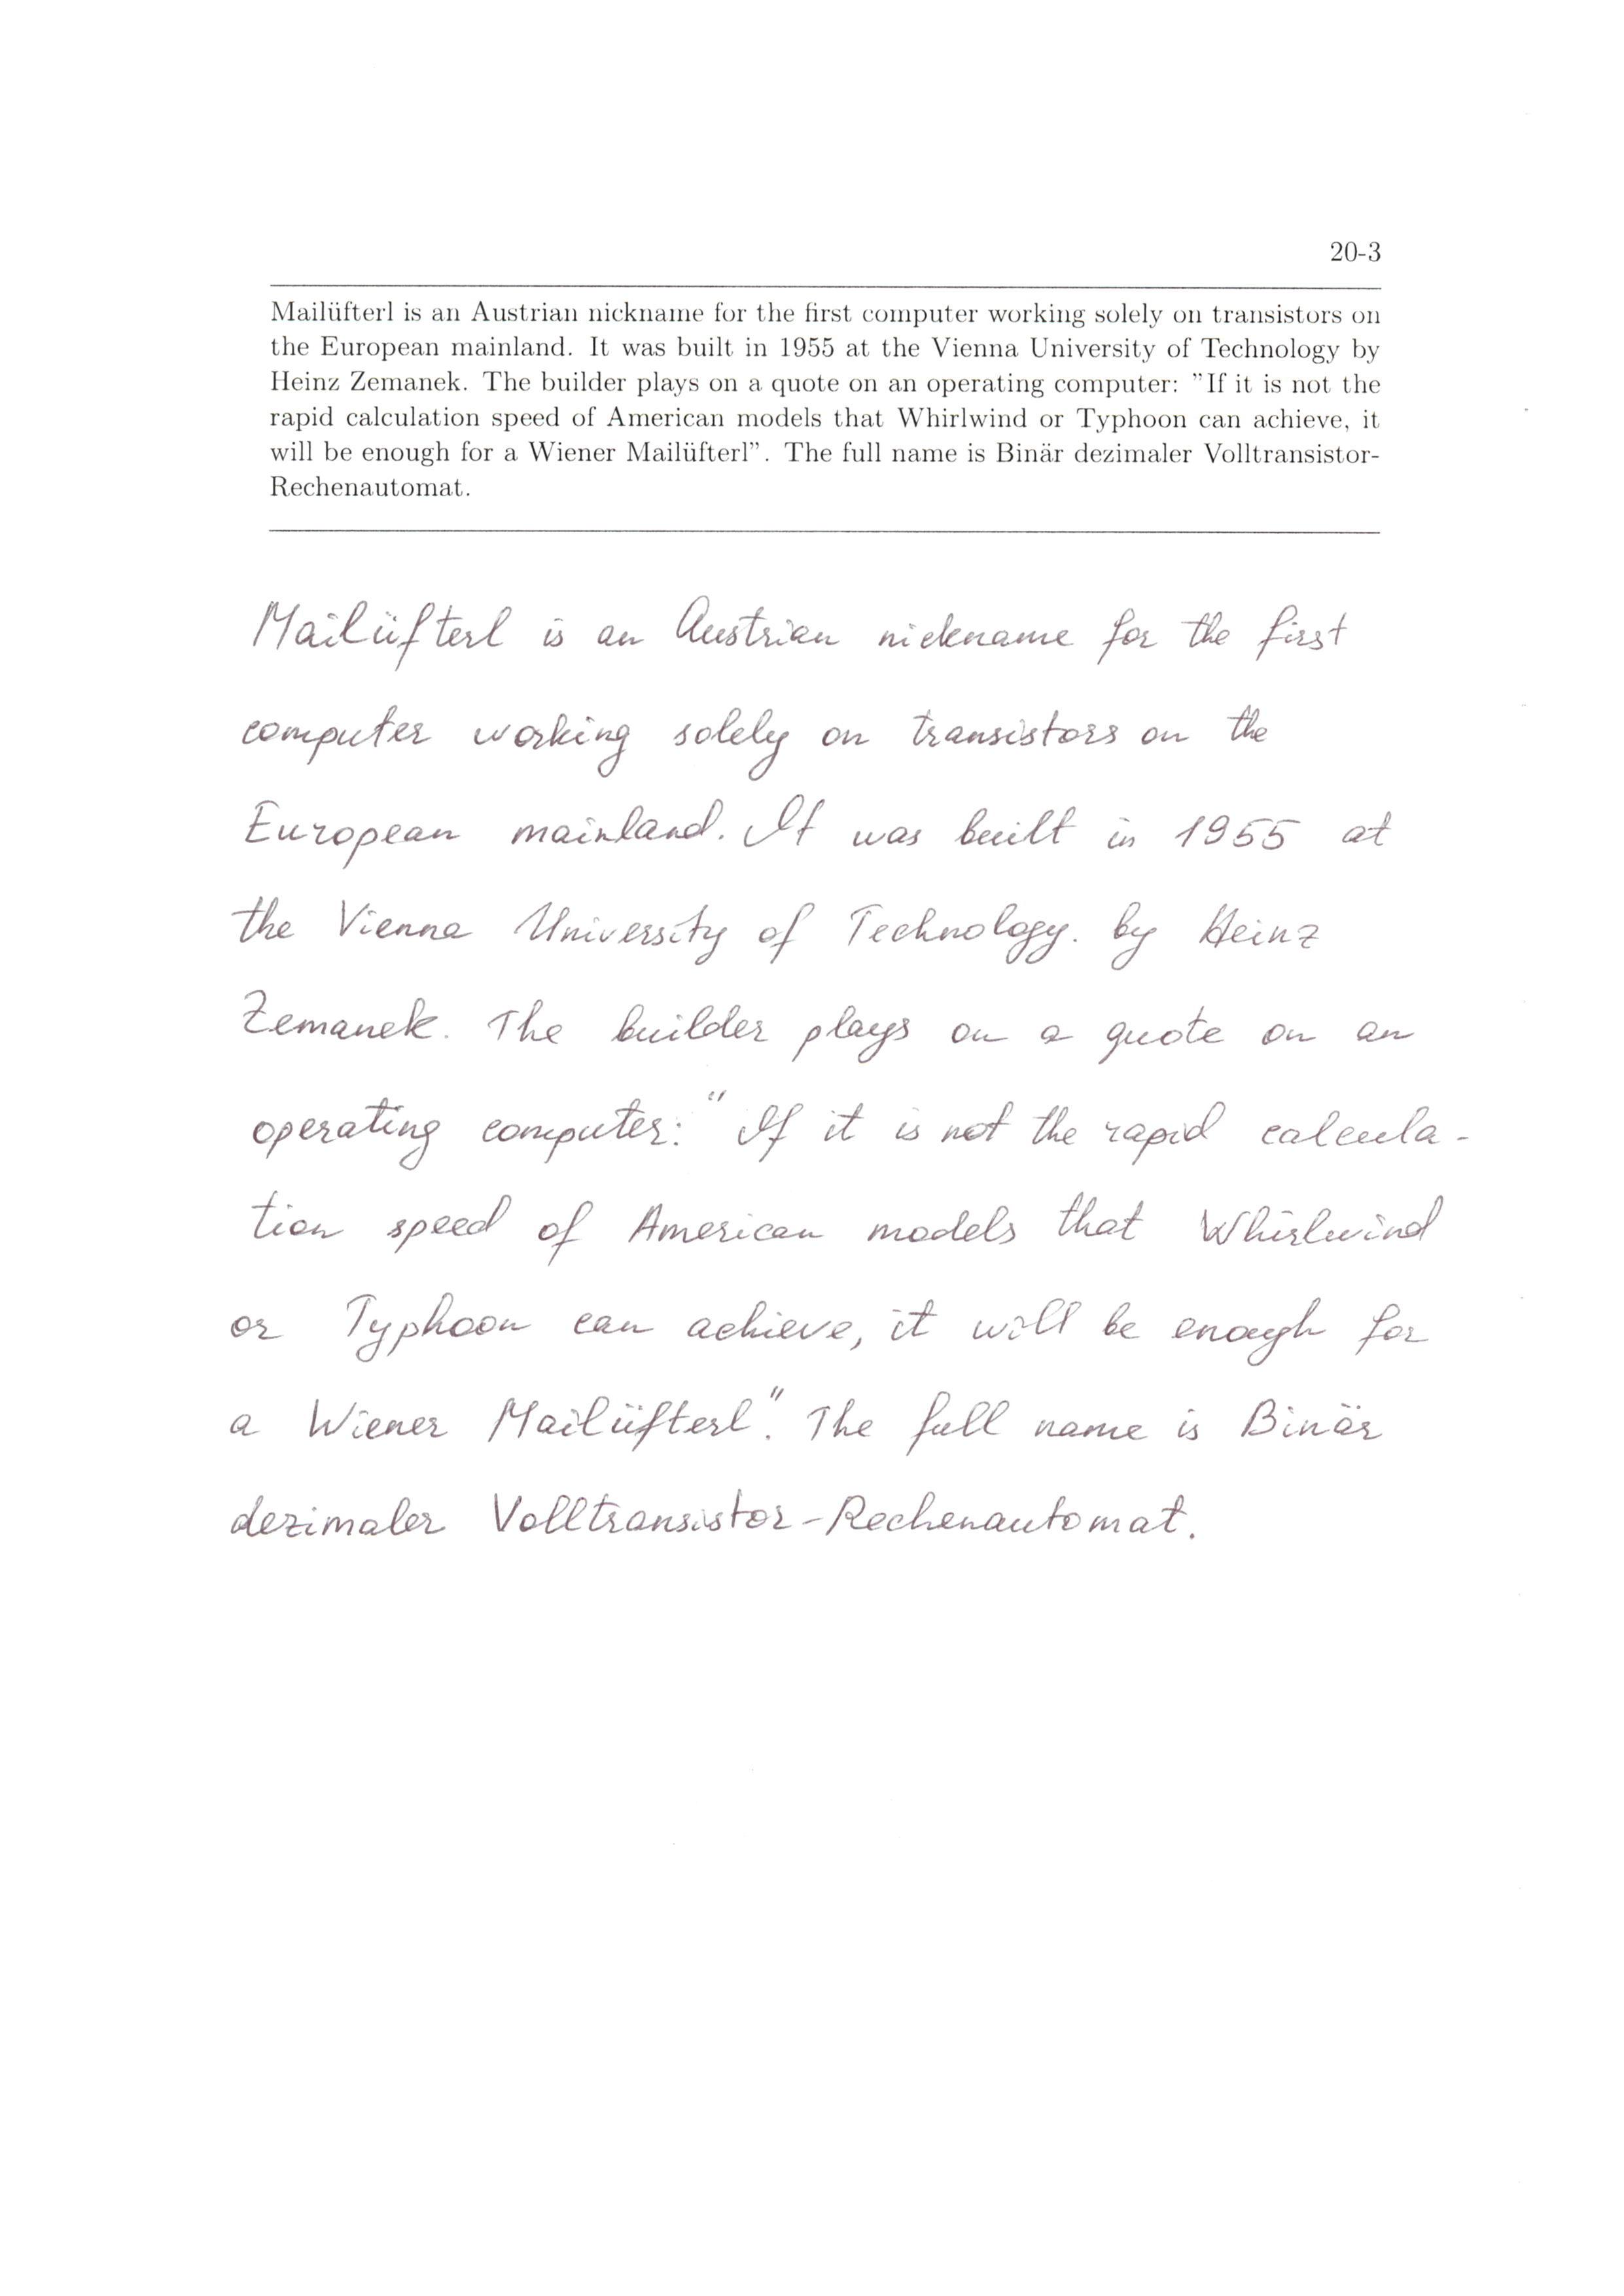 20-3
Mailüfterl is an Austrian nickname for the first computer working solely on transistors on
the European mainland. It was built in 1955 at the Vienna University of Technology by
Heinz Zemanek. The builder plays on a quote on an operating computer: ”If it is not the
rapid calculation speed of American models that Whirlwind or Typhoon can achieve, it
will be enough for a Wiener Mailüfterl”. The full name is Binär dezimaler Volltransistor-
Rechenautomat.
Mailüfterl is an Austrian nickname for the first
computer working solely on transistors on the
European mainland. It was built in 1955 at
the Vienna University of Technology. by Heinz
Zemanek. The builder plays on a quote on an
operating computer: "If it is not the rapid calcula-
tion speed of American models that Whirlwind
or Typhoon can achieve, it will be enough for
a Wiener Mailüfterl". The full name is Binär
dezimaler Volltransistor-Rechenautomat.